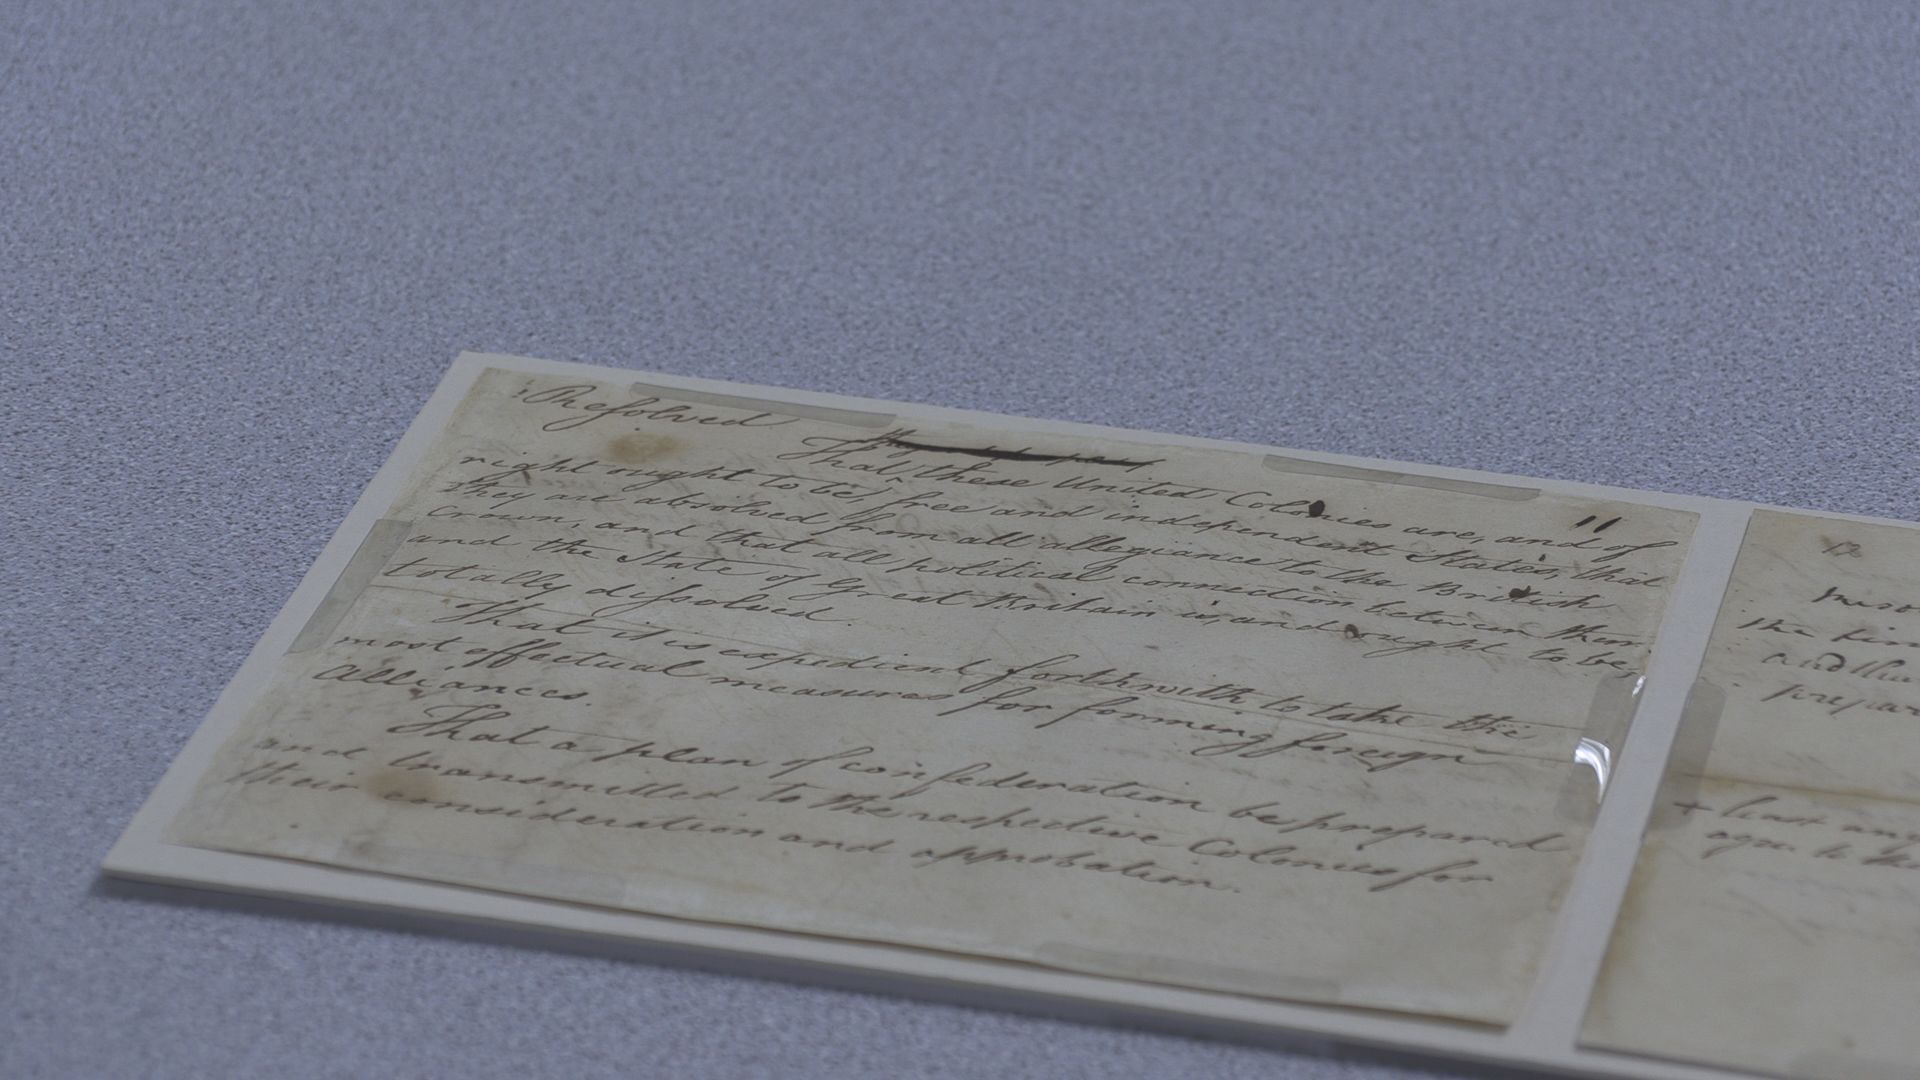 Resolved
That these United Colonies are, and of
right ought to be, free and independent States, that
they are absolved from all allegiance to the British
Crown, and that all political connection between them
and the State of Great Britain is, and ought to be,
totally dissolved.
That it is expedient forthwith to take the
most effectual measures for forming foreign
Alliances.
That a plan of confederation be prepared
and transmitted to the respective Colonies for
their consideration and approbation.
11
12
the
and